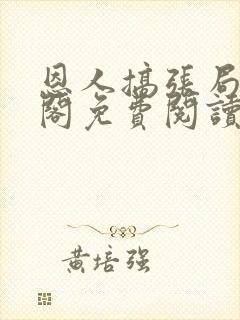 恩人搞张局
阁免費閱讀
黄培强